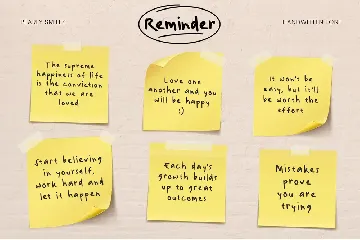 Reminder
The supreme
happiness of life
is the conviction
that we are
loved
Love one
another and you
will be happy
:)
It won't be
easy, but it'll
be worth the
effort
Start believing
in yourself,
work hard and
let it happen
Each day's
growth builds
up to great
outcomes
Mistakes
prove
you are
trying